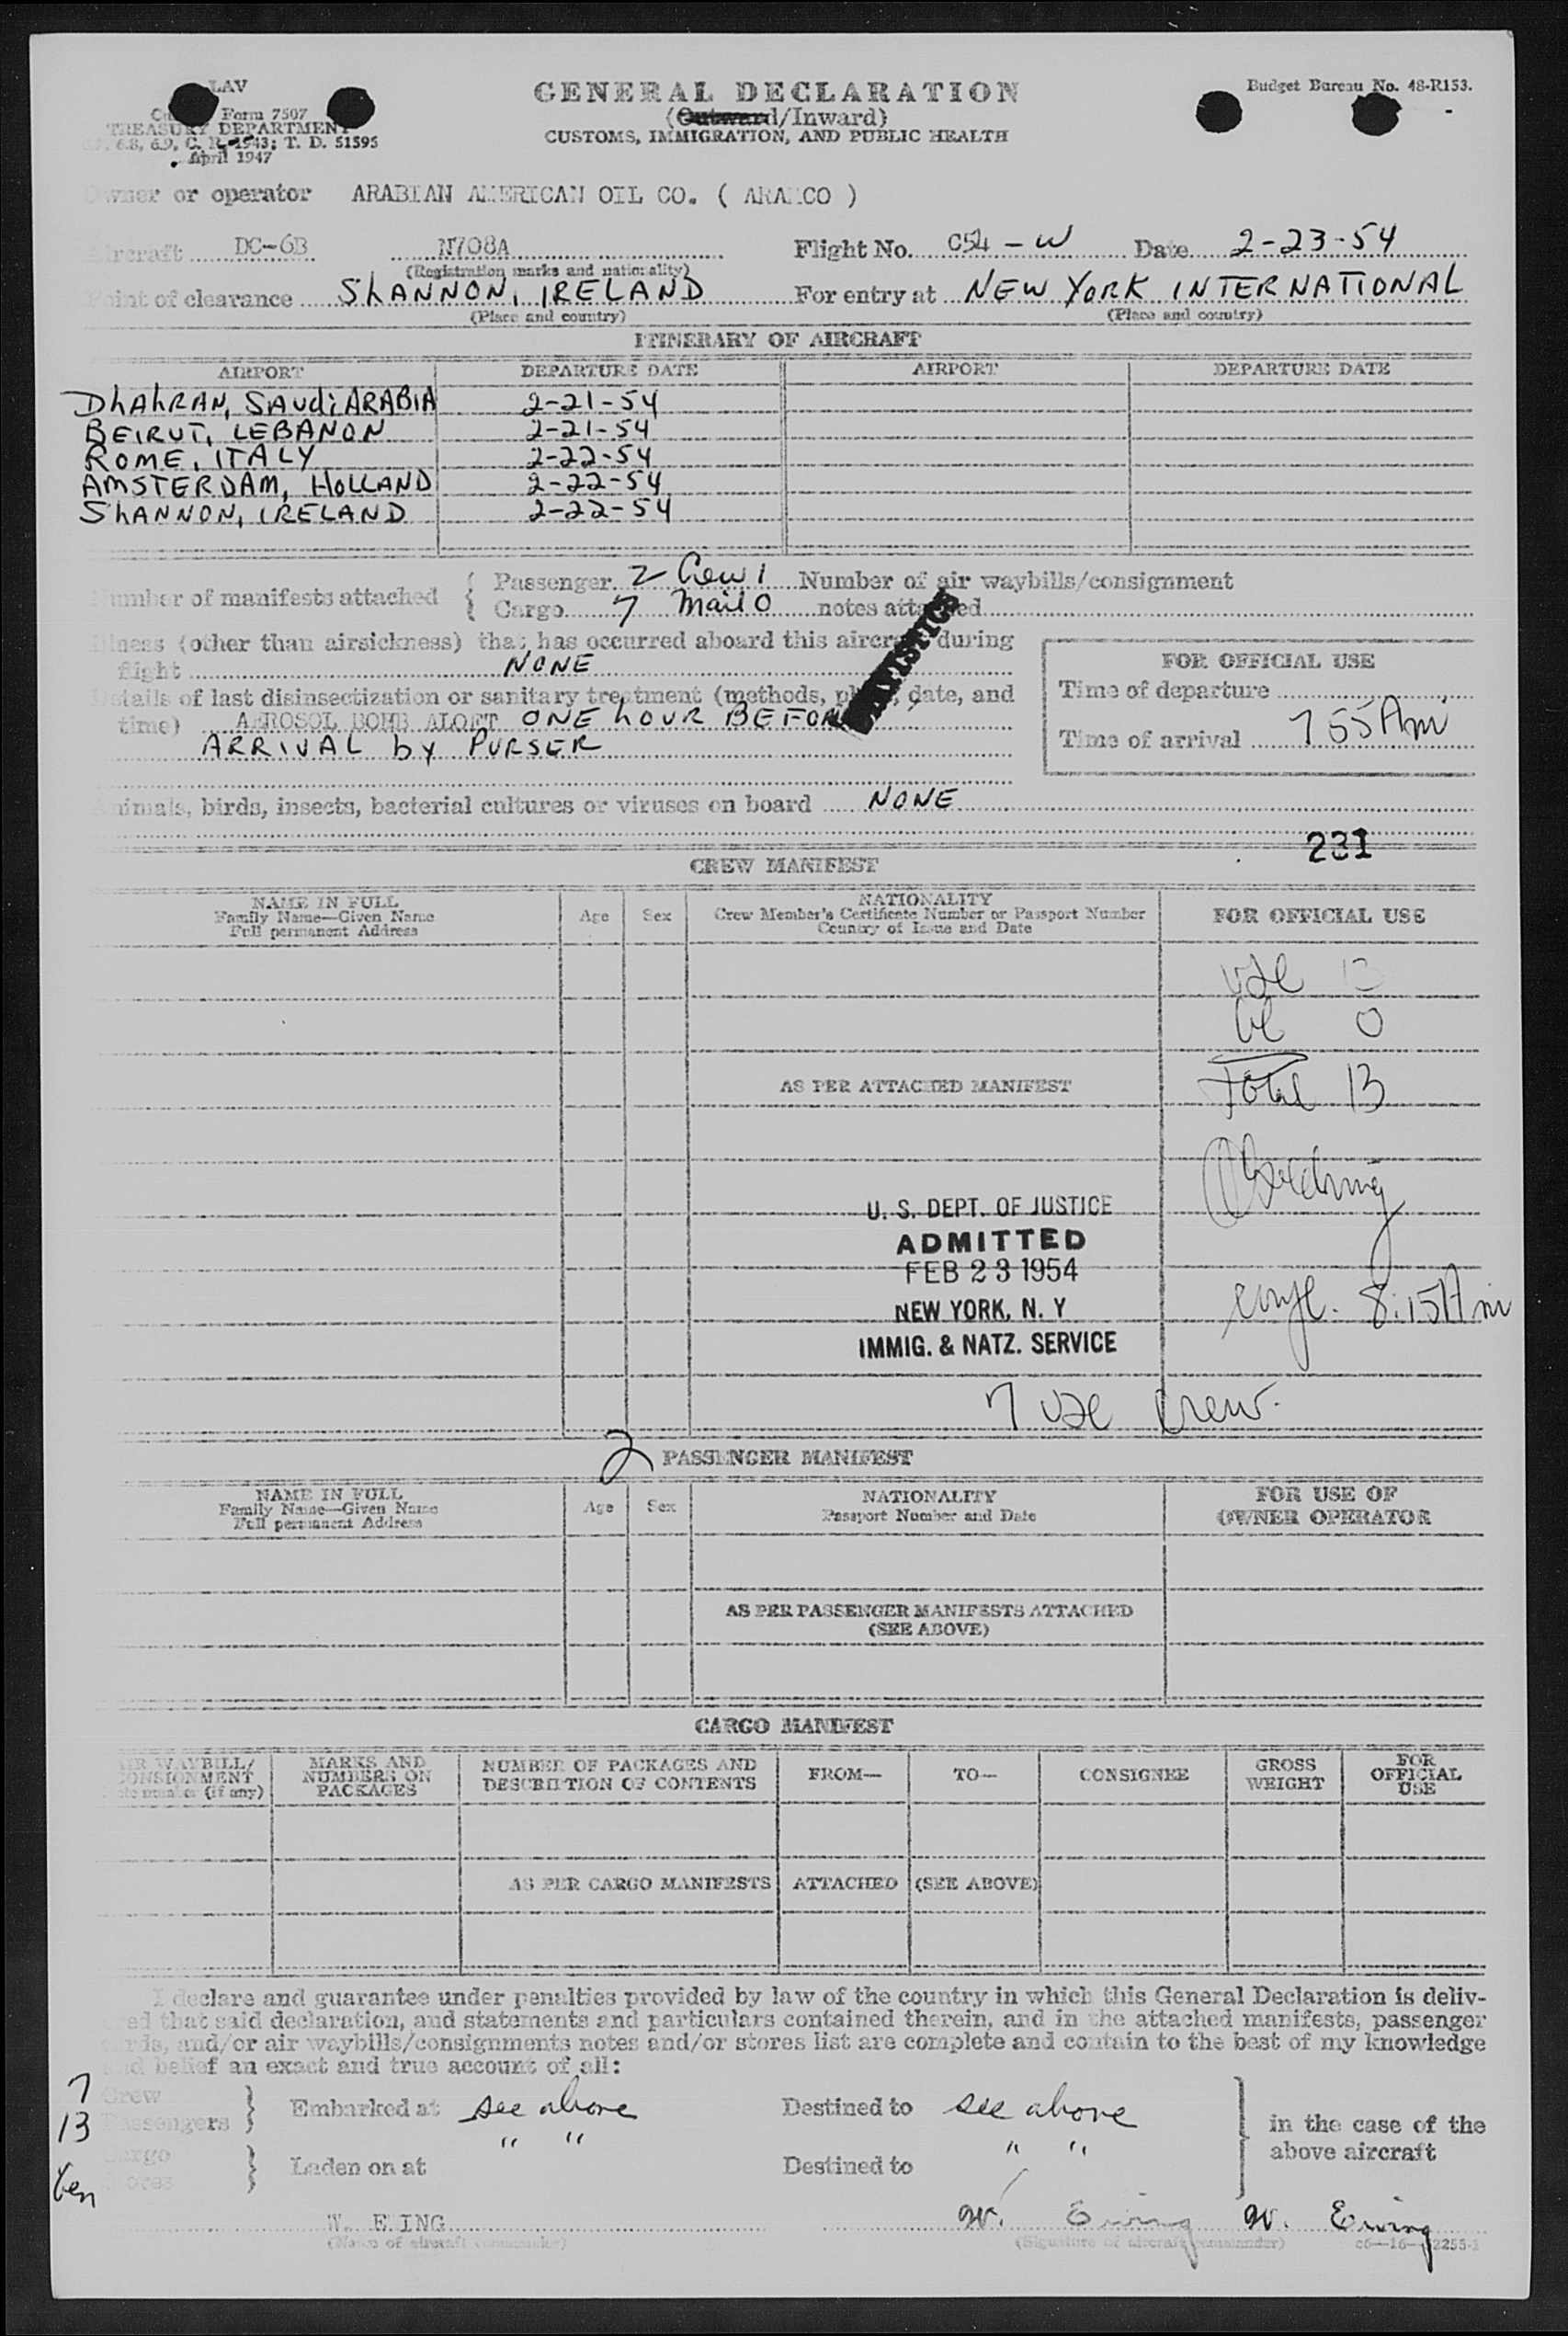 LAV
Form 7507
TREASURY DEPARTMENT
6.8, 6.9, C. R. 1943; T. D. 51595
April 1947
GENERAL DECLARATION
(Outward/Inward)
CUSTOMS, IMMIGRATION, AND PUBLIC HEALTH
Budget Bureau No. 48-R153.
Owner or operator ARABIAN AMERICAN OIL CO. ( ARAMCO )
Aircraft DC-6B N708A Flight No. C54 - W Date 2-23-54
(Registration marks and nationality)
Point of clearance ShANNON, IRELAND For entry at NEW YORK INTERNATIONAL
(Place and country) (Place and country)
ITINERARY OF AIRCRAFT
AIRPORT DEPARTURE DATE AIRPORT DEPARTURE DATE
DhAhRAN, SAudi ARABIA 2-21-54
BEIRUT, LEBANON 2-21-54
ROME, ITALY 2-22-54
AMSTERDAM, HOLLAND 2-22-54
ShANNON, IRELAND 2-22-54
Number of manifests attached { Passenger 2 Crew 1 Number of air waybills/consignment
{ Cargo 7 Mail 0 notes attached
Illness (other than airsickness) that has occurred aboard this aircraft during
flight NONE
FOR OFFICIAL USE
Details of last disinsectization or sanitary treatment (methods, place, date, and
Time of departure
time) AEROSOL BOMB ALOFT ONE hOUR BEFORE
ARRIVAL by PURSER
Time of arrival 755 Am
Animals, birds, insects, bacterial cultures or viruses on board NONE
231
CREW MANIFEST
NAME IN FULL
Family Name—Given Name
Full permanent Address
Age
Sex
NATIONALITY
Crew Member's Certificate Number or Passport Number
Country of Issue and Date
FOR OFFICIAL USE
13
0
AS PER ATTACHED MANIFEST
Total 13
U. S. DEPT. OF JUSTICE
ADMITTED
FEB 23 1954
NEW YORK, N. Y
IMMIG. & NATZ. SERVICE
8:15 Am
7 Crew.
2
PASSENGER MANIFEST
NAME IN FULL
Family Name—Given Name
Full permanent Address
Age
Sex
NATIONALITY
Passport Number and Date
FOR USE OF
OWNER OPERATOR
AS PER PASSENGER MANIFESTS ATTACHED
(SEE ABOVE)
CARGO MANIFEST
AIR WAYBILL/
CONSIGNMENT
note number (if any)
MARKS AND
NUMBERS ON
PACKAGES
NUMBER OF PACKAGES AND
DESCRIPTION OF CONTENTS
FROM—
TO—
CONSIGNEE
GROSS
WEIGHT
FOR
OFFICIAL
USE
AS PER CARGO MANIFESTS ATTACHED (SEE ABOVE)
I declare and guarantee under penalties provided by law of the country in which this General Declaration is deliv-
ered that said declaration, and statements and particulars contained therein, and in the attached manifests, passenger
cards, and/or air waybills/consignments notes and/or stores list are complete and contain to the best of my knowledge
and belief an exact and true account of all:
7 Crew
13 Passengers } Embarked at see above Destined to see above
in the case of the
above aircraft
Cargo
Stores } Laden on at " " Destined to " "
W. EWING W. Ewing W. Ewing
(Name of aircraft commander) (Signature of aircraft commander)